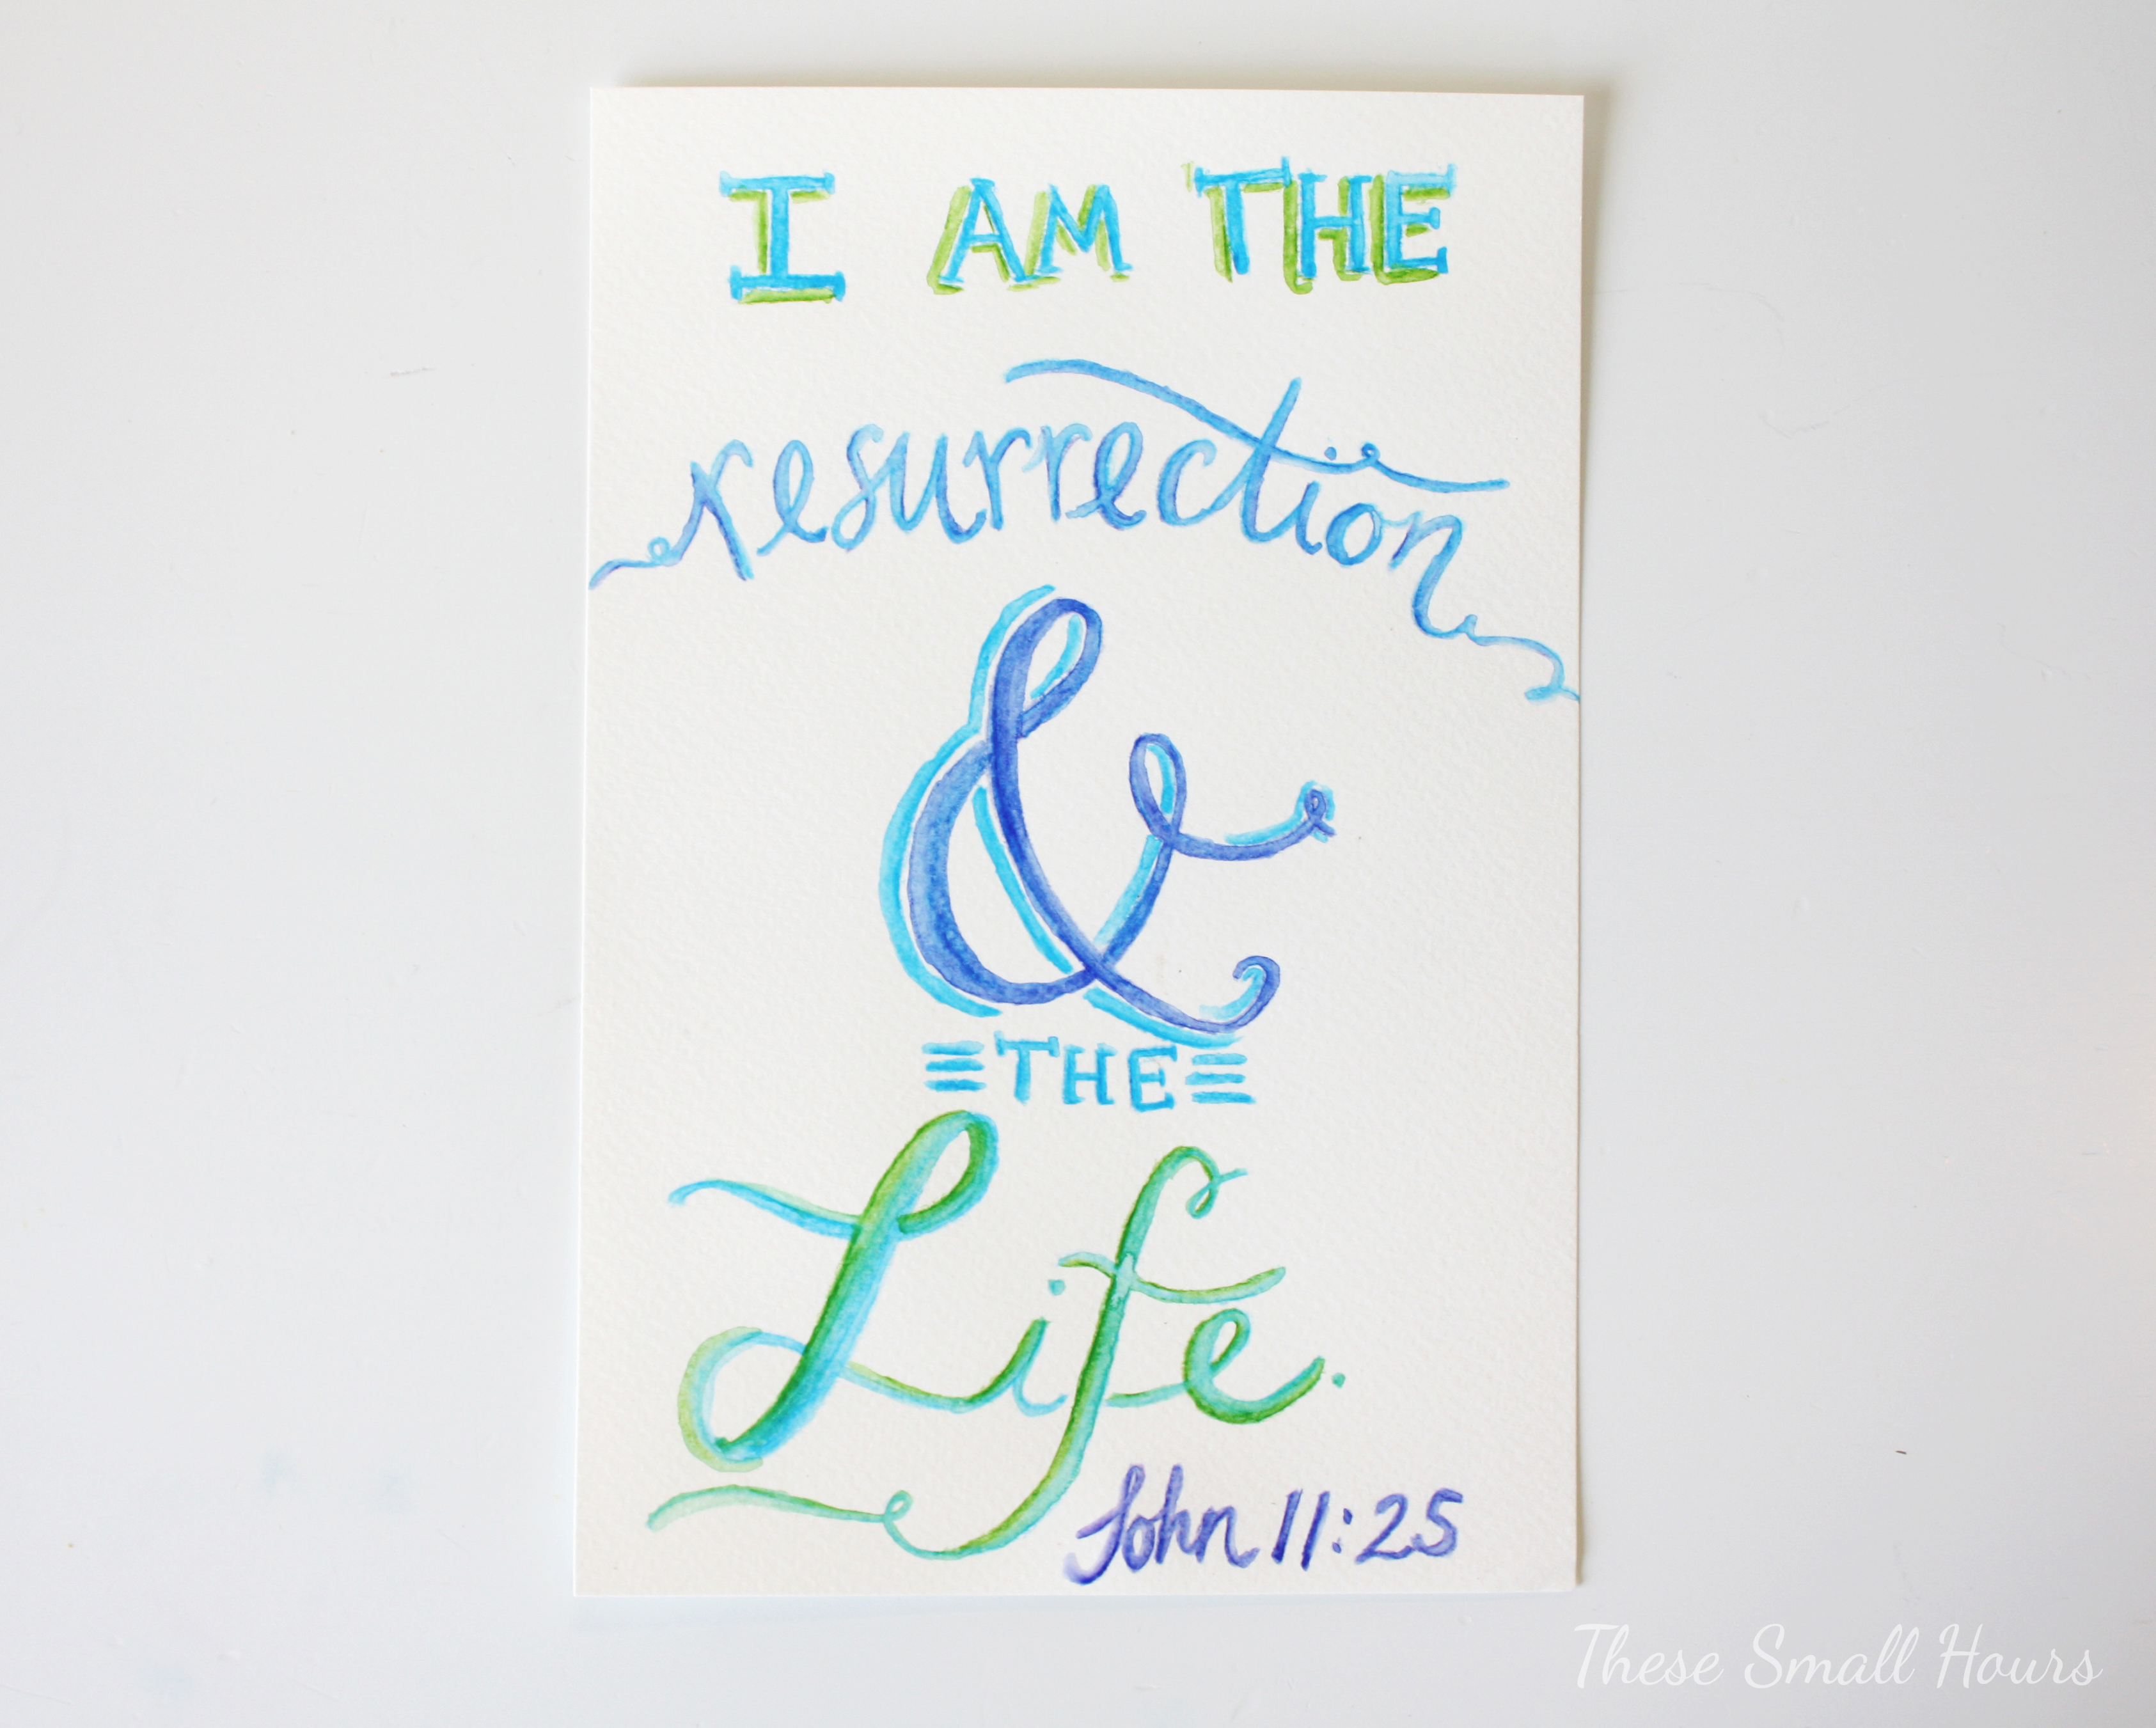 I AM THE
resurrection
&
THE
Life.
John 11:25
These Small Hours